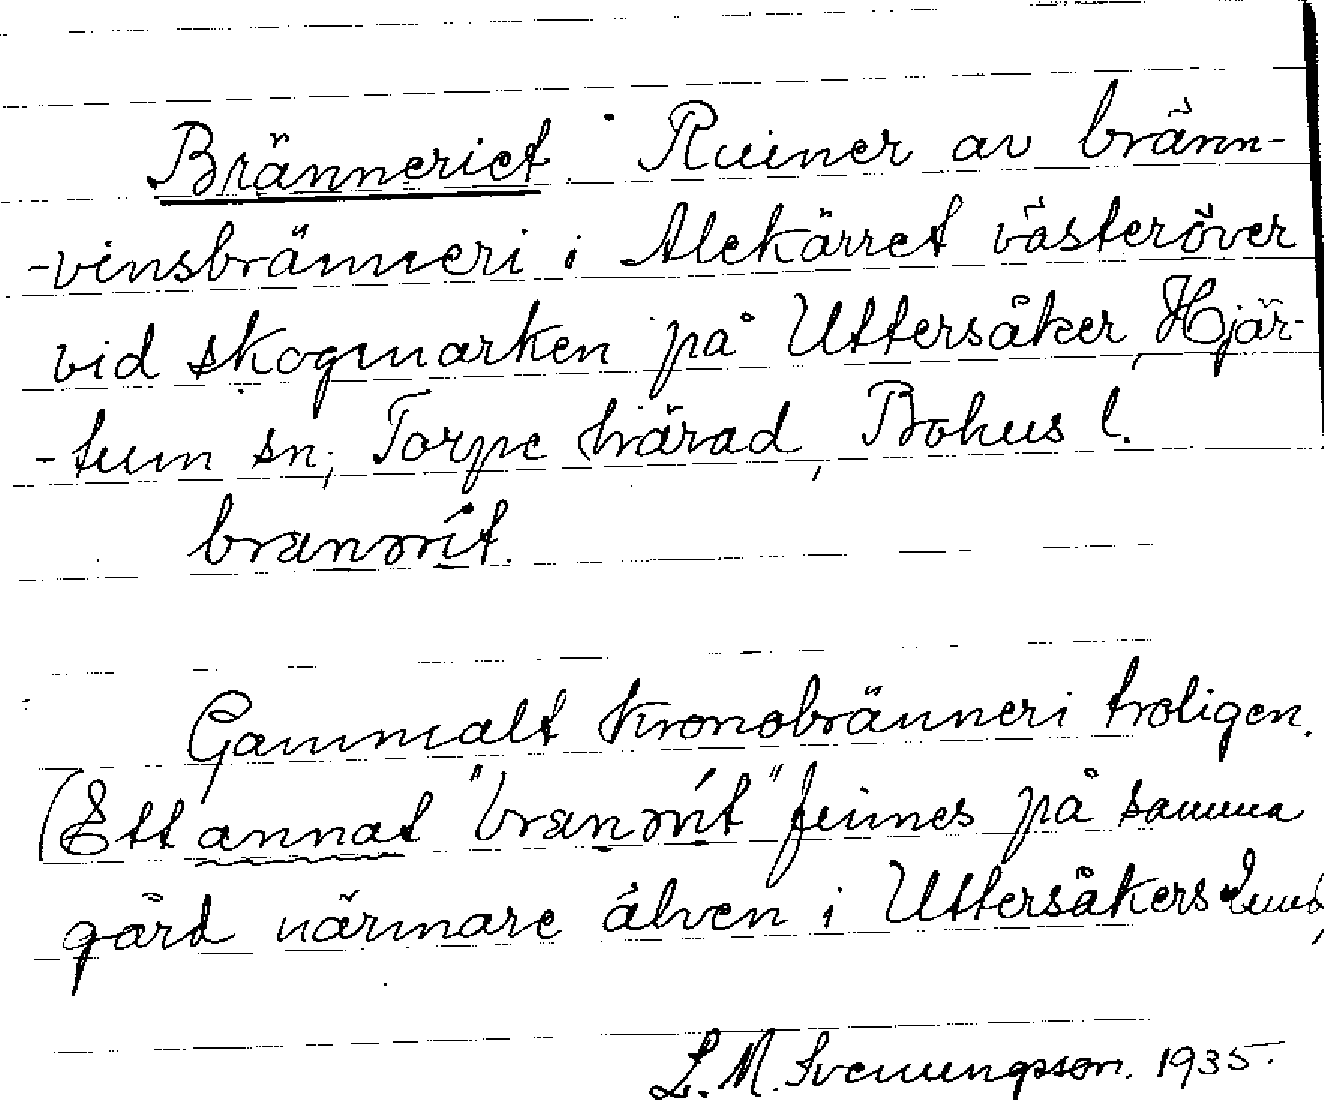 Bränneriet. Ruiner av bränn-
-vinsbränneri i Alekärret västeröver
vid skogmarken på Uttersåker, Hjär-
-tum sn; Torpe härad, Bohus l.
Gammalt kronobränneri troligen.
(Ett annat " " finnes på samma
gård närmare älven i Uttersåkers
L. M. Svenungsson. 1935.